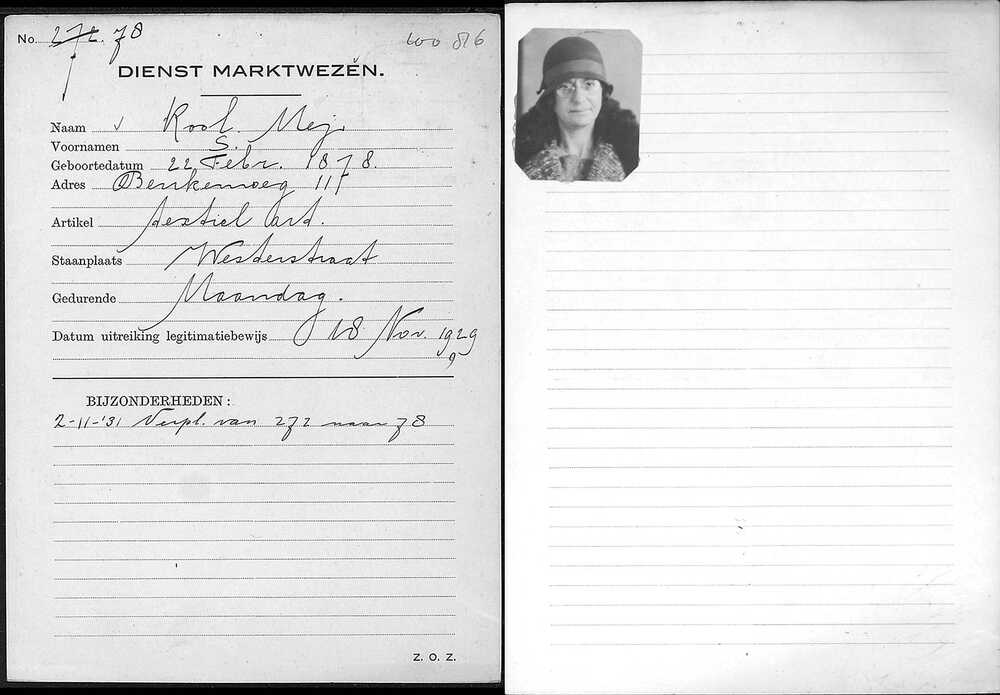 No. 272. 78
600 816
DIENST MARKTWEZEN.
Naam v Kool. Mej.
Voornamen S.
Geboortedatum 22 Febr. 1878.
Adres Beukenweg 11
Artikel textiel art.
Staanplaats Westerstraat
Gedurende Maandag.
Datum uitreiking legitimatiebewijs 18 Nov. 1929
9
BIJZONDERHEDEN:
2-11-'31 Verpl. van 272 naar 78
Z. O. Z.